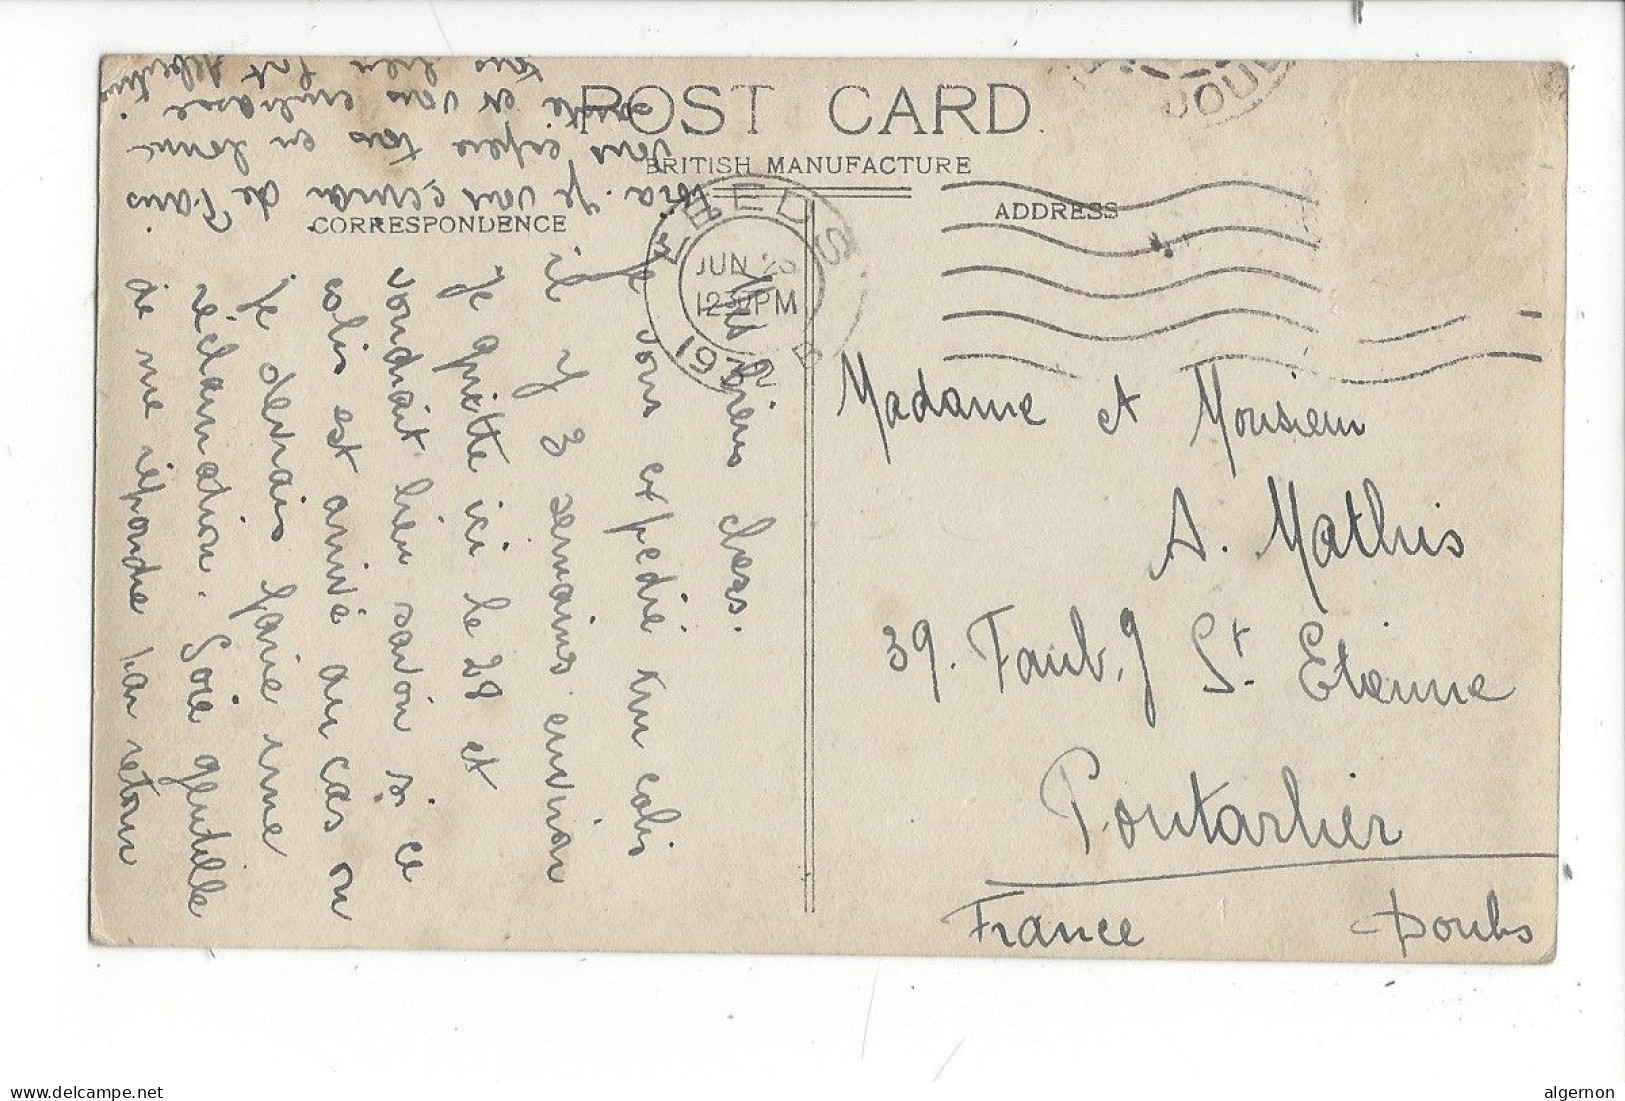 POST CARD
BRITISH MANUFACTURE
CORRESPONDENCE
ADDRESS
LEEDS
JUN 25
12 30 PM
193
5
DOUB
Mes biens chers.
Je vous expedié un colis
il y 3 semaines environ
Je quitte ici le 28 et
voudrait bien savoir si ce
colis est arrivé au cas ou
je devrais faire une
réclamation. Soié gentille
de me répondre par retour
Je vous écrirai de Paris
vous espère tous en bonne
santé et vous embrasse
tous bien fort
Madame et Monsieur
A. Mathis
39. Faub.g St. Etienne
Pontarlier
France Doubs
delcampe.net
algernon